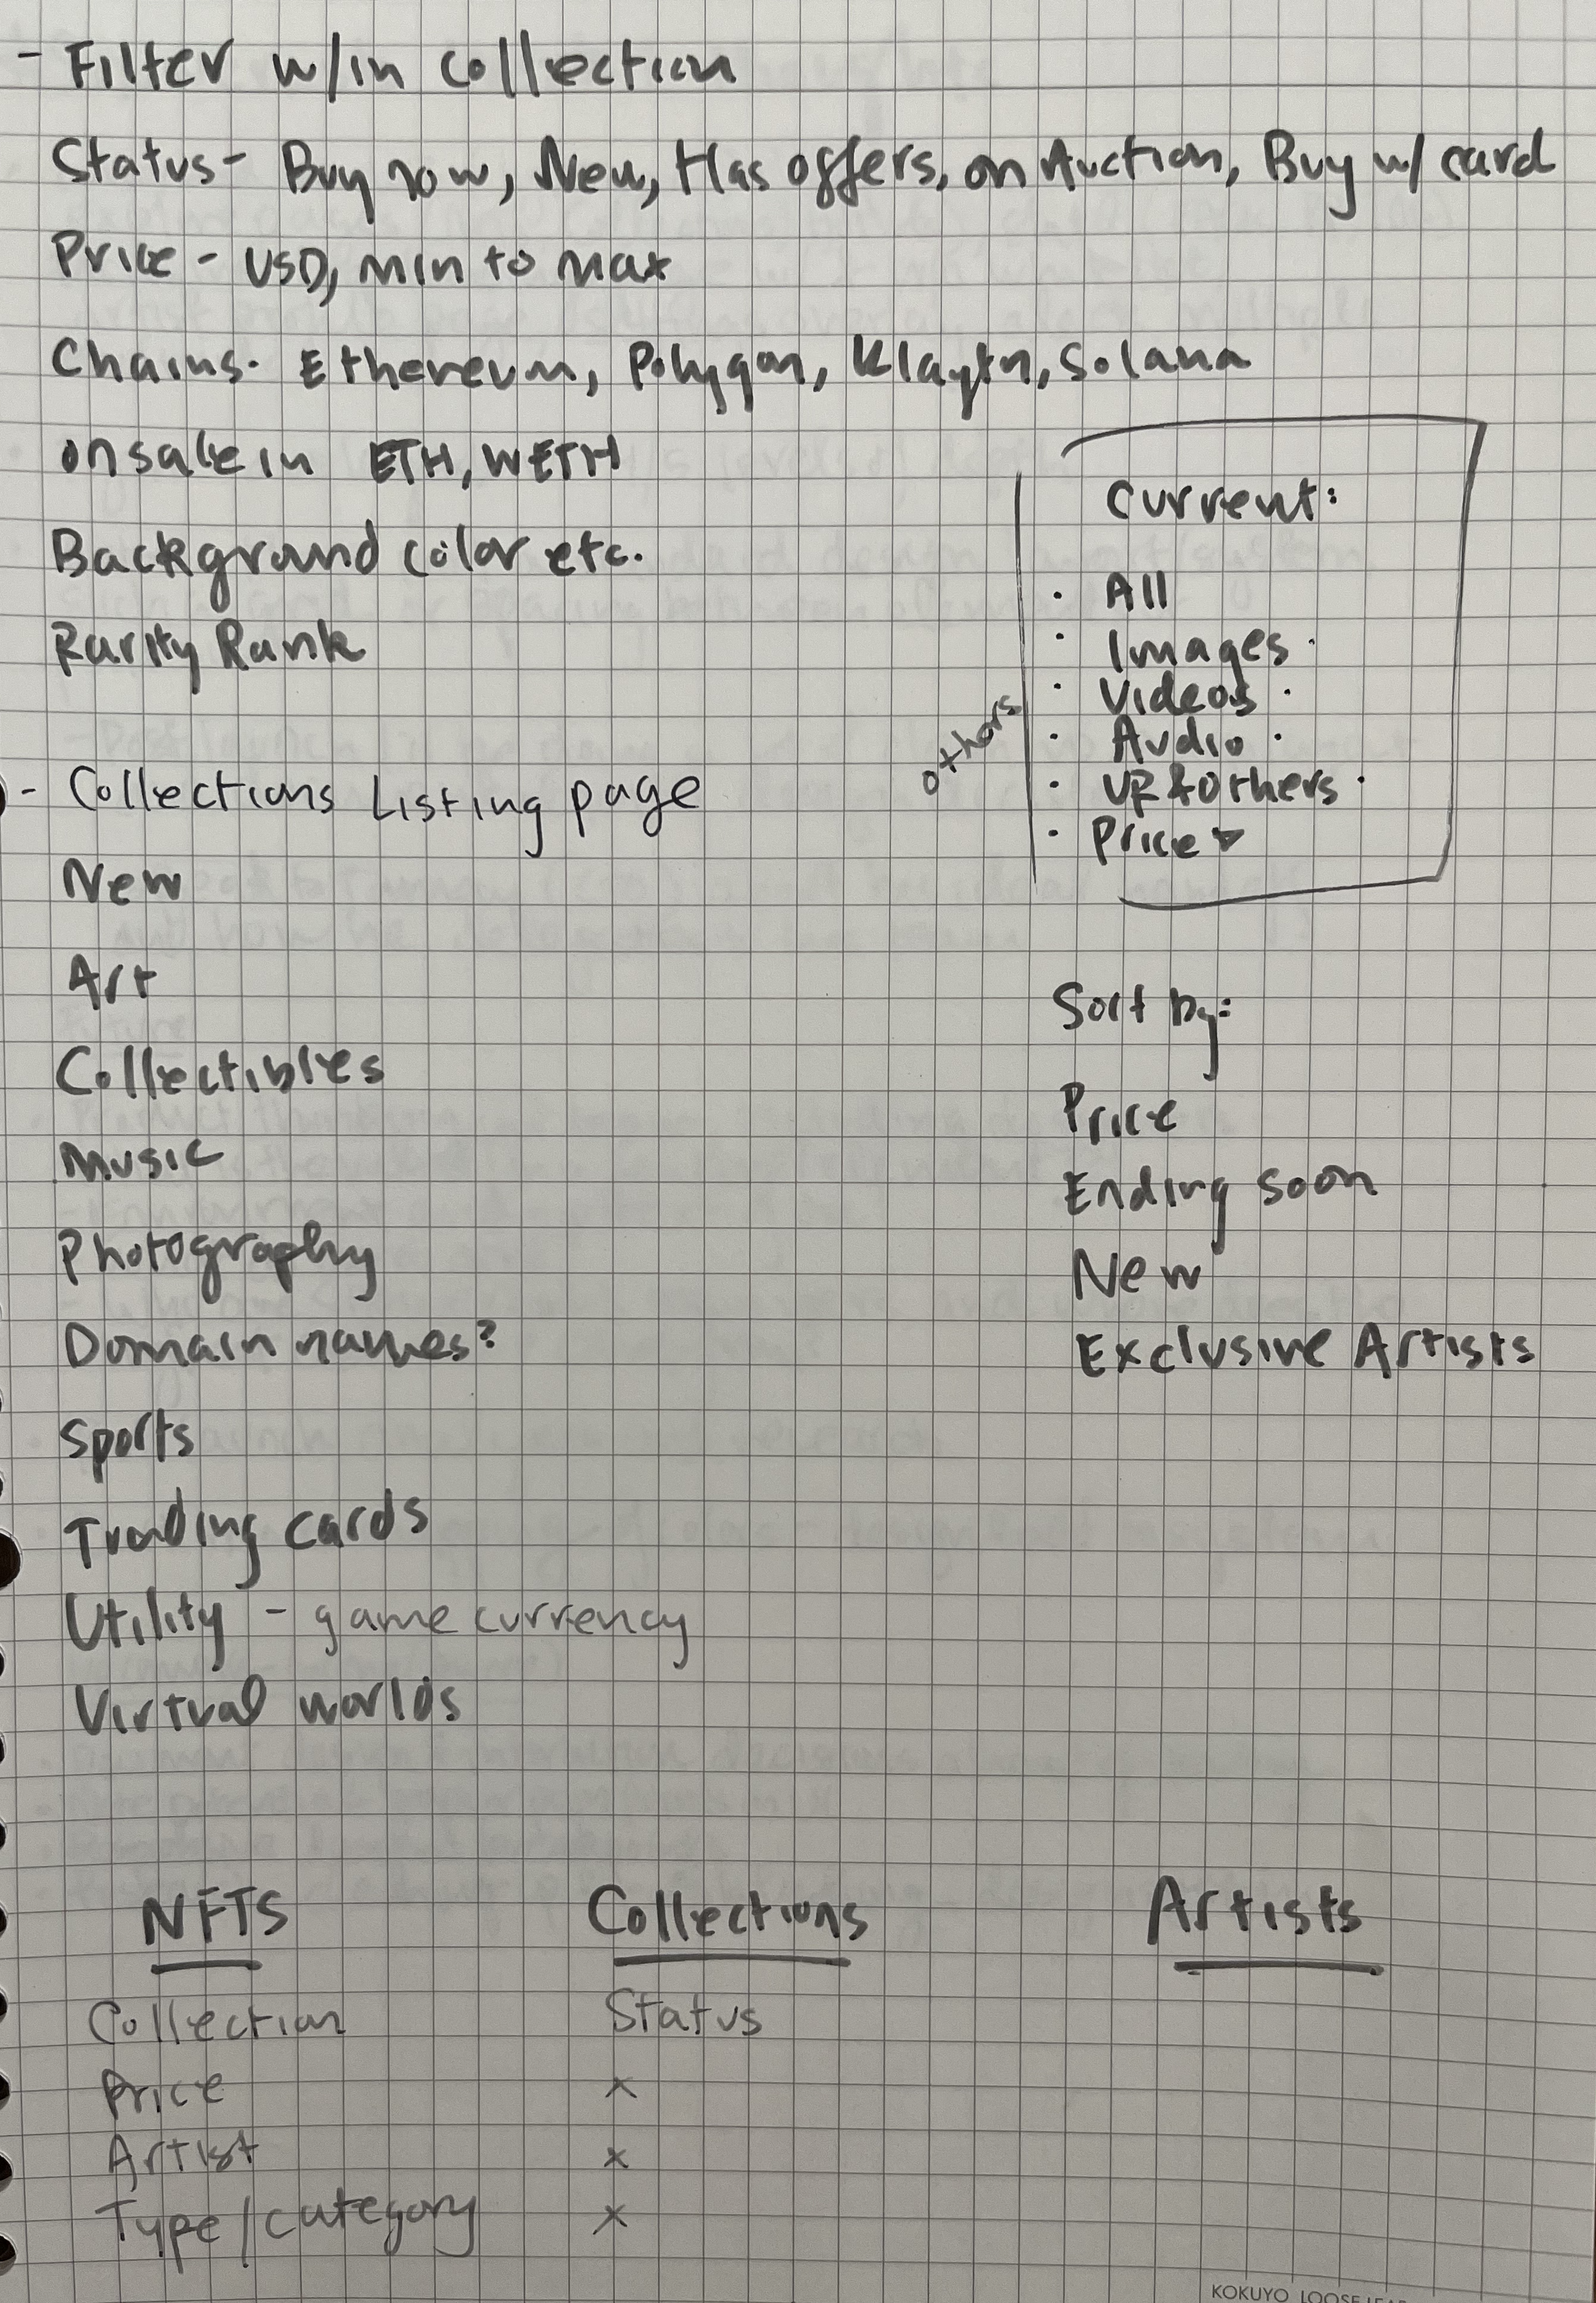 - Filter w/in collection
Status - Buy now, New, Has offers, on Auction, Buy w/ card
Price - USD, min to max
Chains. Ethereum, Polygon, Klaytn, Solana
on sale in ETH, WETH
Background color etc.
Rarity Rank
- Collections Listing page
New
Art
Collectibles
Music
Photography
Domain names?
Sports
Trading cards
Utility - game currency
Virtual worlds
others
Current:
· All
· Images ·
· Videos ·
· Audio ·
· VR & Others ·
· Price ▾
Sort by:
Price
Ending soon
New
Exclusive Artists
NFTS Collections Artists
Collection Status
Price x
Artist x
Type/category x
KOKUYO LOOSE-LEAF